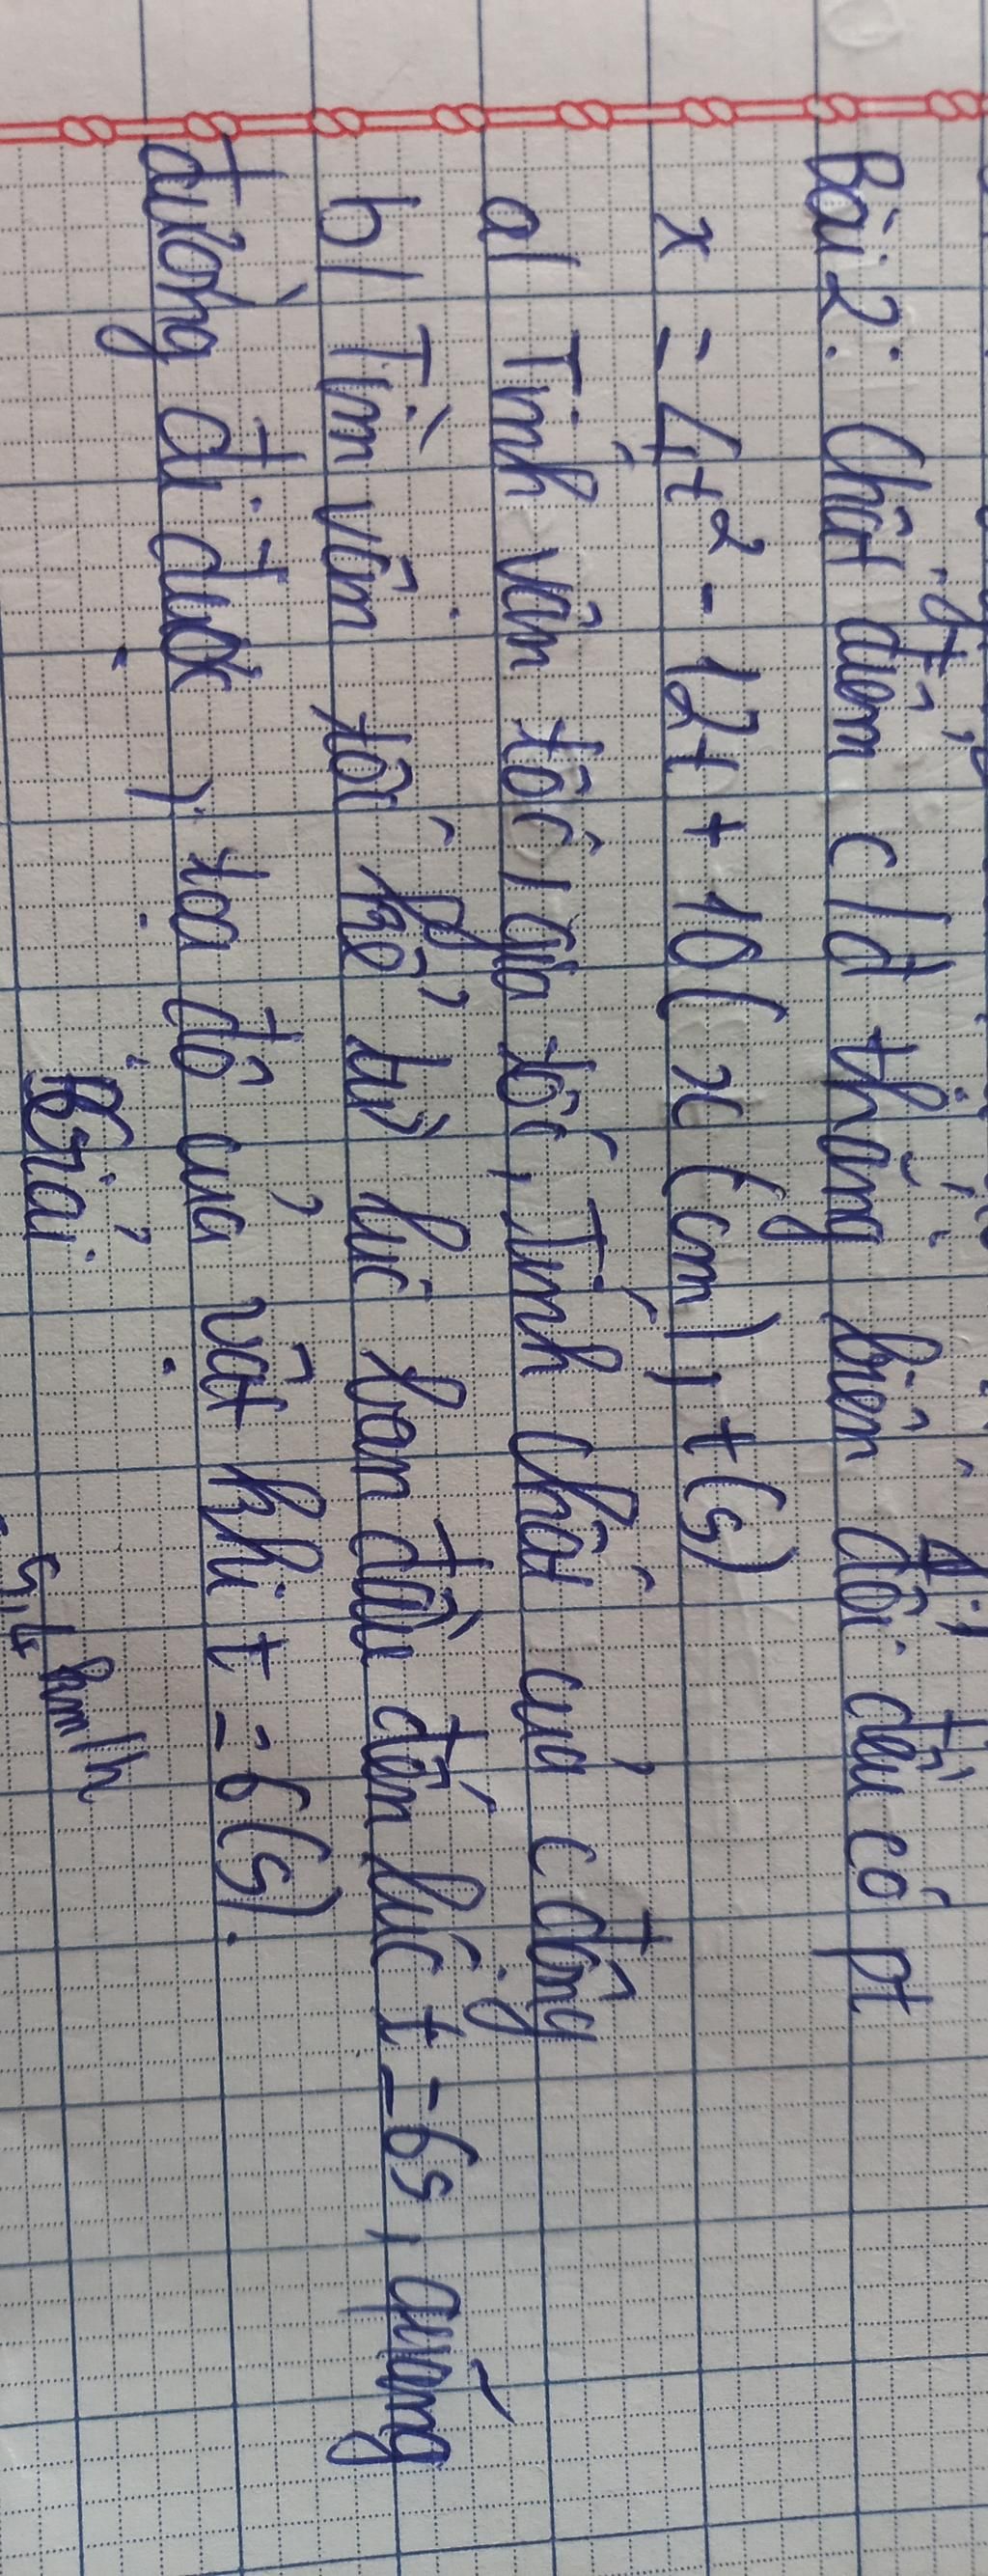 Bài 2: Chất điểm c/đ thẳng biến đổi đều có pt
x = 4t² - 12t + 10 (x (cm), t (s)
a/ Tính vận tốc, gia tốc, Tính chất của cđộng
b/ Tìm vận tốc kể từ lúc ban đầu đến lúc t = 6s, quãng
đường đi được, tọa độ của vật khi t = 6(s).
Giải
5,4 km/h